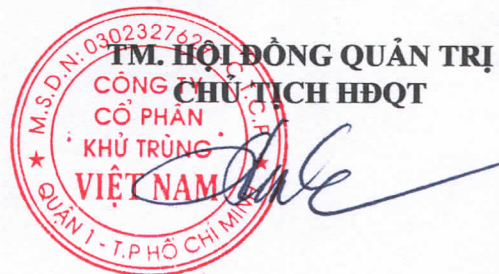 TM. HỘI ĐỒNG QUẢN TRỊ
CHỦ TỊCH HĐQT
M.S.D.N: 030232762
C.T.C.P
CÔNG TY
CỔ PHẦN
KHỬ TRÙNG
VIỆT NAM
QUẬN 1 - T.P HỒ CHÍ MINH